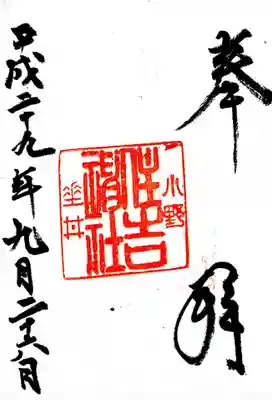 奉拝
小野
住吉神社
垂井
平成二十九年九月二十六日